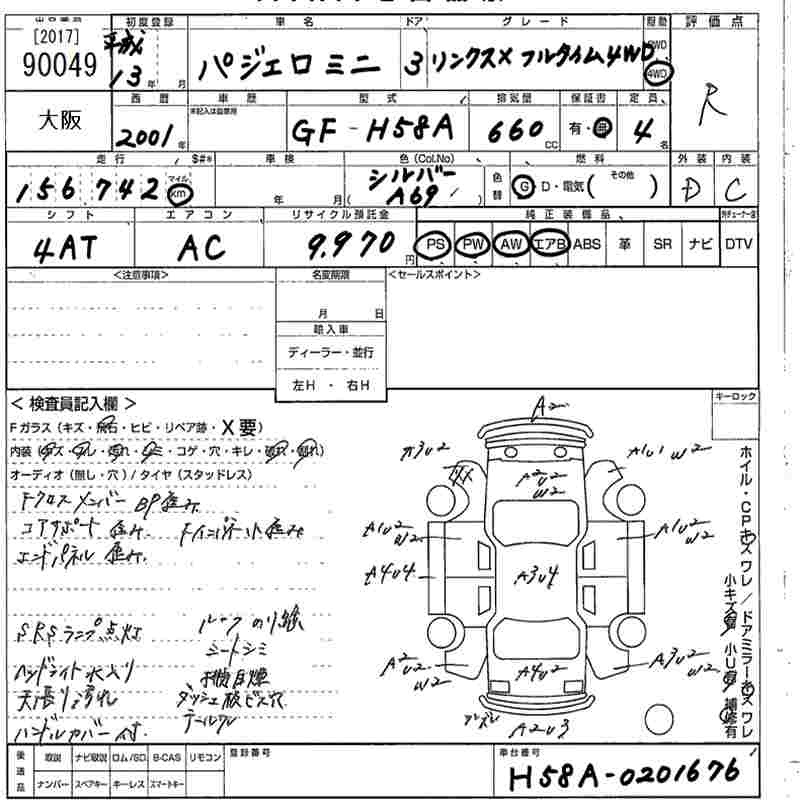 初度登録 車名 ドア グレード 駆動 評価点
[2017]
90049
平成
13年 月
パジェロミニ 3 リンクスX フルタイム4WD 2WD 4WD R
大阪
西暦 車歴 型式 排気量 保証書 定員
2001年 GF-H58A 660cc 有・無 4名
走行 S#* 車検 色(Col.No) 燃料 外装 内装
156,742 マイル km 年 月 シルバー 色替 G D・電気( その他 ) D C
(A69 )
シフト エアコン リサイクル預託金 純正装備品
4AT AC 9,970円 PS PW AW エアB ABS 革 SR ナビ DTV
<注意事項> 名変期限 <セールスポイント>
月 日
輸入車
ディーラー・並行
左H ・ 右H
<検査員記入欄> キーロック
Fガラス(キズ・飛石・ヒビ・リペア跡・X要)
内装(キズ・スレ・汚れ・シミ・コゲ・穴・キレ・破れ・割れ)
オーディオ(無し・穴)/タイヤ(スタッドレス)
Fクロスメンバー BP歪み
コアサポート 歪み FインパネルD歪み
エンドパネル 歪み
SRSランプ点灯 ルーフのり跡
シートシミ
ヘッドライト水入り 機関煙
天張り汚れ ダッシュ板ビス穴
ハンドルカバー付 テールワレ
A2
A3U2 A1U1 W2
A2U2
W2
A1U2 W2 A1U2 W2
A4U4 A3U4
A2U2 W2 A3U2 W2
A4U2
A2U3
ホイル・CPキズワレ/ドアミラーキズワレ
小キズ有 小U有 補修有
後送品 取説 ナビ取説 ロム/SD B-CAS リモコン 登録番号 車台番号
ナンバー スペアキー キーレス スマートキー H58A-0201676